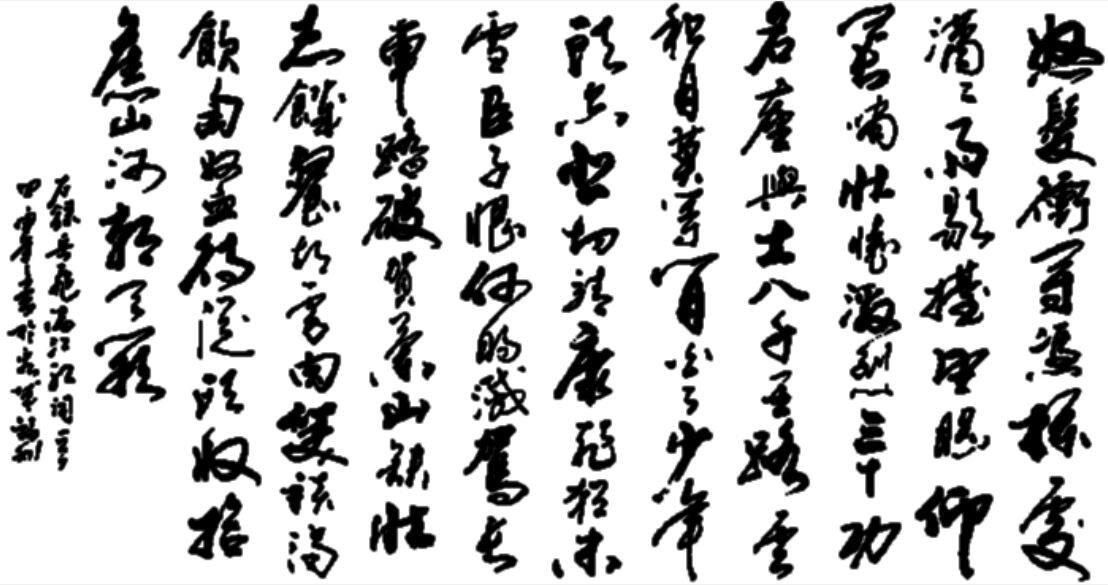 怒髮衝冠憑欄處
瀟瀟雨歇擡望眼仰
天長嘯壯懷激烈三十功
名塵與土八千里路雲
和月莫等閒白了少年
頭空悲切靖康恥猶未
雪臣子恨何時滅駕長
車踏破賀蘭山缺壯
志飢餐胡虜肉笑談渴
飲匈奴血待從頭收拾
舊山河朝天闕
右錄岳飛滿江紅詞一首
甲申年書於